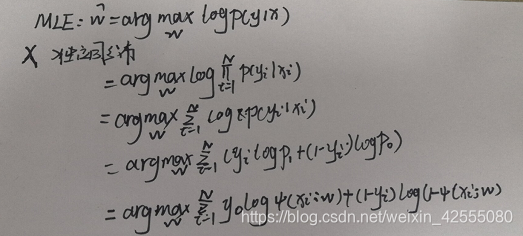 MLE: ŵ = arg max_w log P(y|x)
X 独立同分布
= arg max_w log ∏_{i=1}^N P(yi|xi)
= arg max_w Σ_{i=1}^N log P(yi|xi)
= arg max_w Σ_{i=1}^N (yi log P1 + (1-yi) log P0)
= arg max_w Σ_{i=1}^N yi log ψ(xi;w) + (1-yi) log(1-ψ(xi;w)
https://blog.csdn.net/weixin_42555080